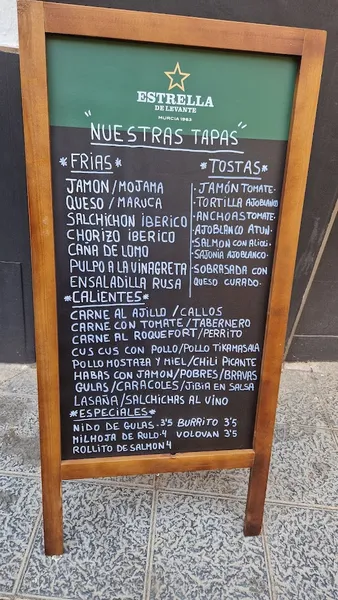 ESTRELLA
DE LEVANTE
MURCIA 1963
"NUESTRAS TAPAS"
*FRIAS*
JAMON/MOJAMA
QUESO/MARUCA
SALCHICHON IBERICO
CHORIZO IBERICO
CANA DE LOMO
PULPO A LA VINAGRETA
ENSALADILLA RUSA
*TOSTAS*
·JAMÓN TOMATE·
·TORTILLA AJOBLANCO
·ANCHOAS TOMATE·
·AJOBLANCO ATUN·
·SALMON CON ALIOLI
·SAJONIA AJOBLANCO·
·SOBRASADA CON
QUESO CURADO·
*CALIENTES*
CARNE AL AJILLO/CALLOS
CARNE CON TOMATE/TABERNERO
CARNE AL ROQUEFORT/PERRITO
CUS CUS CON POLLO/POLLO TIKAMASALA
POLLO MOSTAZA Y MIEL/CHILI PICANTE
HABAS CON JAMON/POBRES/BRAVAS
GULAS/CARACOLES/JIBIA EN SALSA
LASAÑA/SALCHICHAS AL VINO
*ESPECIALES*
NIDO DE GULAS·3'5 BURRITO 3'5
MILHOJA DE RULO·4 VOLOVAN 3'5
ROLLITO DE SALMON 4